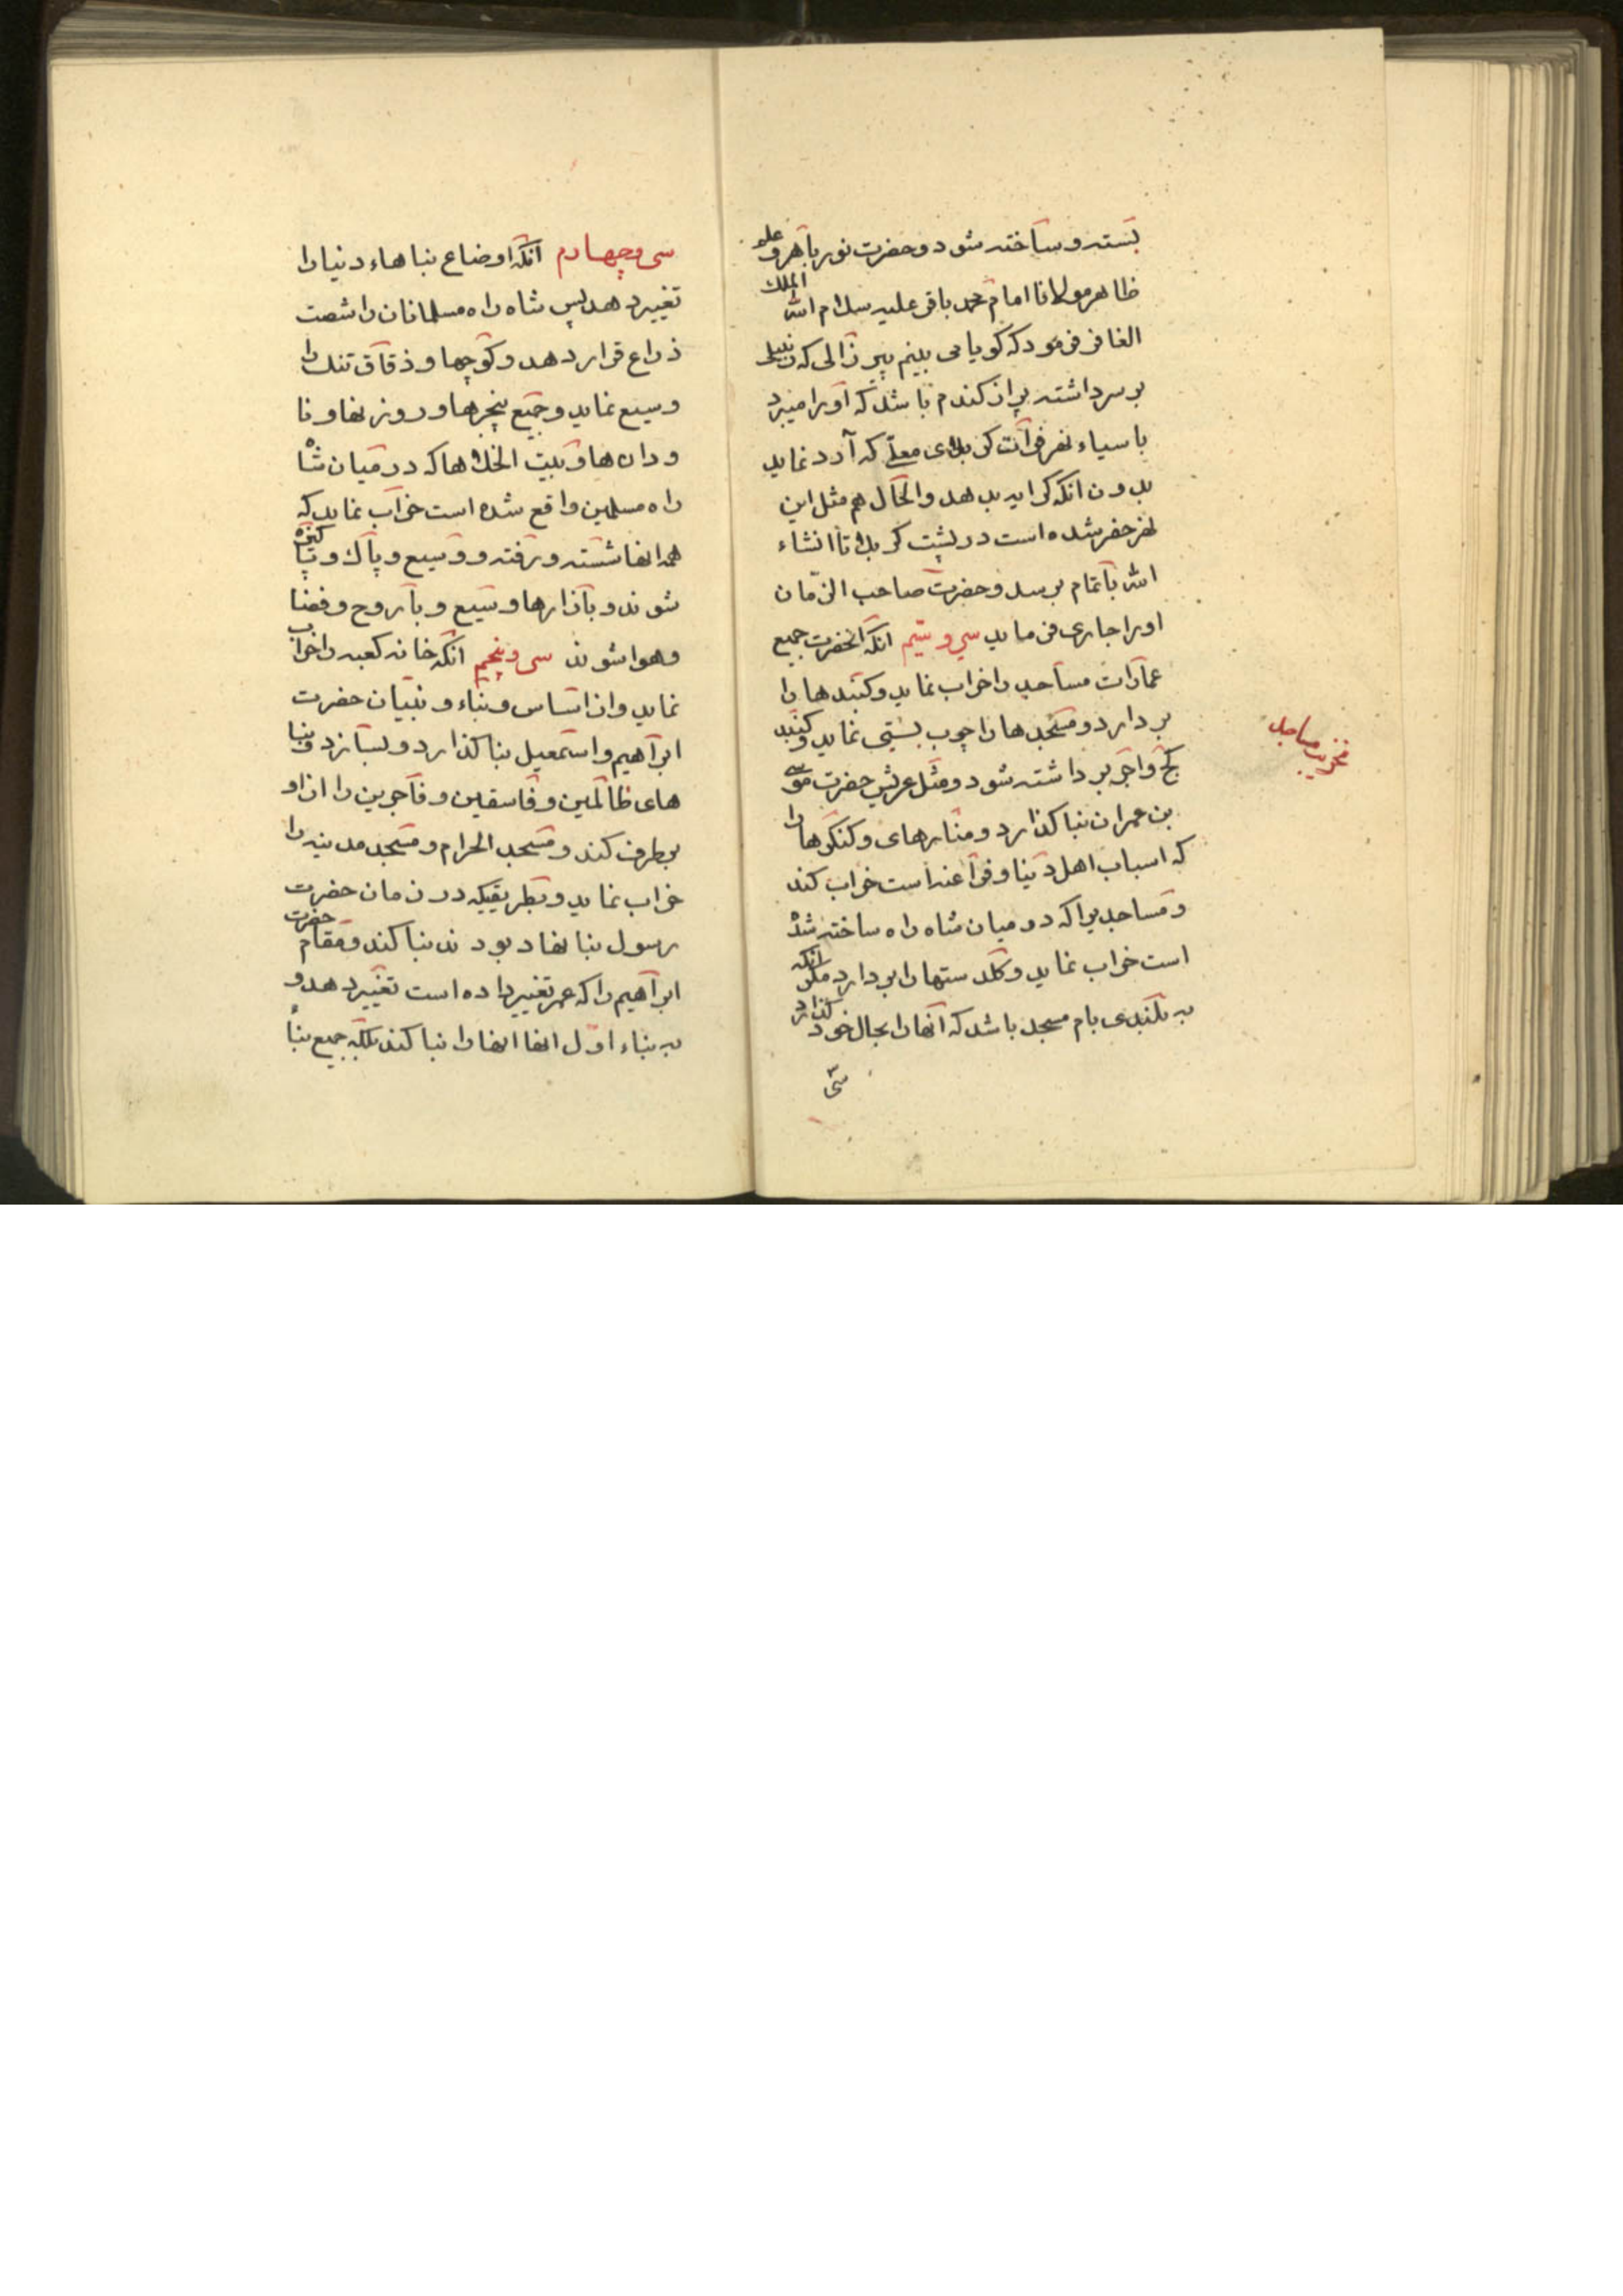 بسته و ساخته شود و حضرت نور باهر و علم
ظاهر مولانا امام محمد باقر علیه سلام الله الملك
الغافر فرمود که کویا می بینم پیر زالی که زنبیلی
بر سر داشته پر از کندم باشد که اورا میبرد
باسیاء نهر فرات کربلای معلی که آرد نماید
بدون انکه کرایه بدهد والحال هم مثل این
نهر حفر شده است در پشت کربلا تا انشاء
الله باتمام برسد و حضرت صاحب الزمان
اورا جاری فرماید سی و سیم انکه انحضرت جمیع
عمارات مساجد را خراب نماید و کنبدها را
بر دارد و مسجدها را چوب بستی نماید و کنبد
کچ و اجر بر داشته شود و مثل عریش حضرت موسی
بن عمران بنا کذارد و منارهای و کنکرها را
که اسباب اهل دنیا و فراعنه است خراب کند
و مساجدیرا که در میان شاه راه ساخته شده
است خراب نماید و کلدستها را بر دارد مکر انکه
به بلندی بام مسجد باشد که آنها را بحال خود کذارد
سی
تخریب مساجد
سی و چهارم انکه اوضاع بناهاء دنیا را
تغییر دهد پس شاه راه مسلمانان را شصت
ذراع قرار دهد و کوچها و ذقاق تنك را
وسیع نماید و جمیع پنجرها و روزنها و نا
ودانها و بیت الخلاها که در میان شاه
راه مسلمین واقع شده است خراب نماید که
همه انها شسته و رفته و وسیع و پاك و پاکیزه
شوند و بازارها وسیع و با روح و فضا
و هوا شوند سی و پنجم انکه خانه کعبه را خراب
نماید و از اساس و بناء و بنیان حضرت
ابراهیم و اسمعیل بنا کذارد و بسازد و بنا
های ظالمین و فاسقین و فاجرین را از او
برطرف کند و مسجد الحرام و مسجد مدینه را
خراب نماید و بطریقیکه در زمان حضرت
رسول بنا نهاد بودند بنا کند و مقام حضرت
ابراهیم را که عمر تغییر داده است تغییر دهد و
به بناء اول انها انها را بنا کند بلکه جمیع بنا